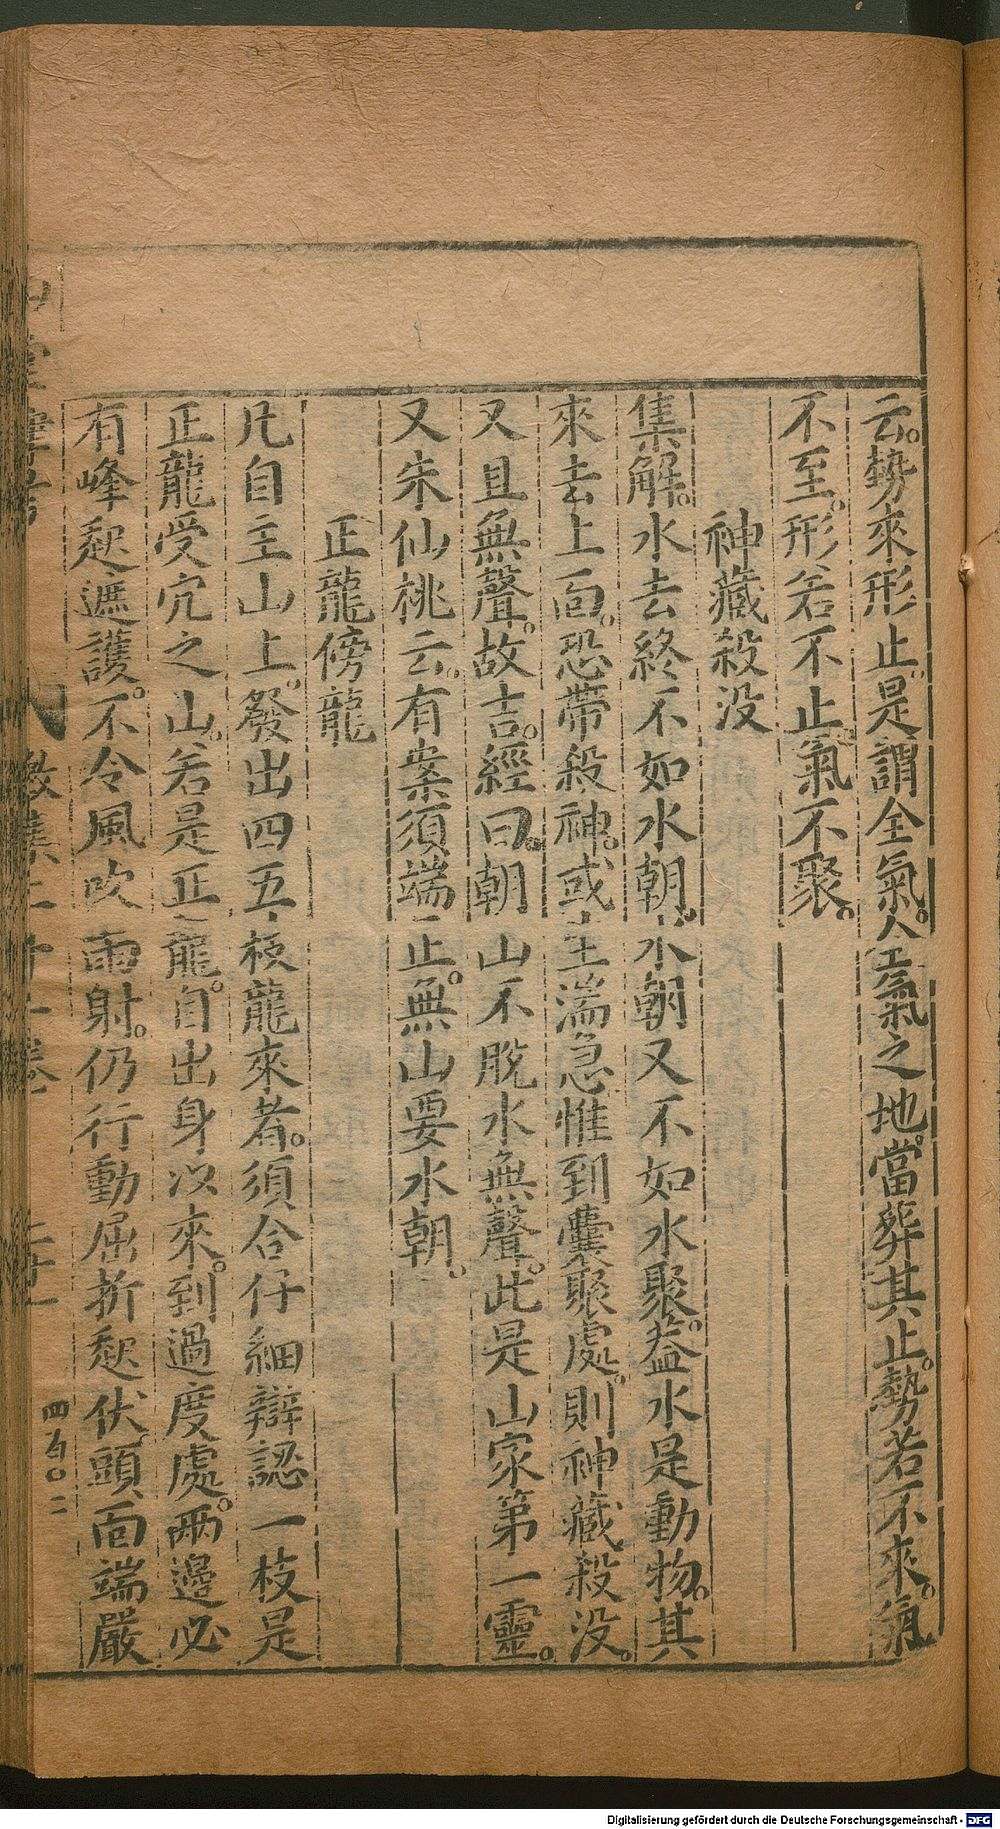 云。勢來形止。是謂全氣。全氣之地。當葬其止。勢若不來。氣
不至。形若不止。氣不聚。
神藏殺没
集解。水去終不如水朝。水朝又不如水聚。葢水是動物。其
來去上面。恐帶殺神。或主湍急惟到囊聚處。則神藏殺没。
又且無聲。故吉。經曰。朝山不脫水無聲。此是山家第一靈。
又朱仙桃云。有案須端正。無山要水朝。
正龍傍龍
凡自主山上。發出四五枝龍來者。須合仔細辯認一枝是
正龍受穴之山。若是正龍。自出身以來。到過度處。兩邊必
有峰起遮護。不令風吹雨射。仍行動屈折起伏。頭面端嚴
四百〇二
Digitalisierung gefördert durch die Deutsche Forschungsgemeinschaft - DFG